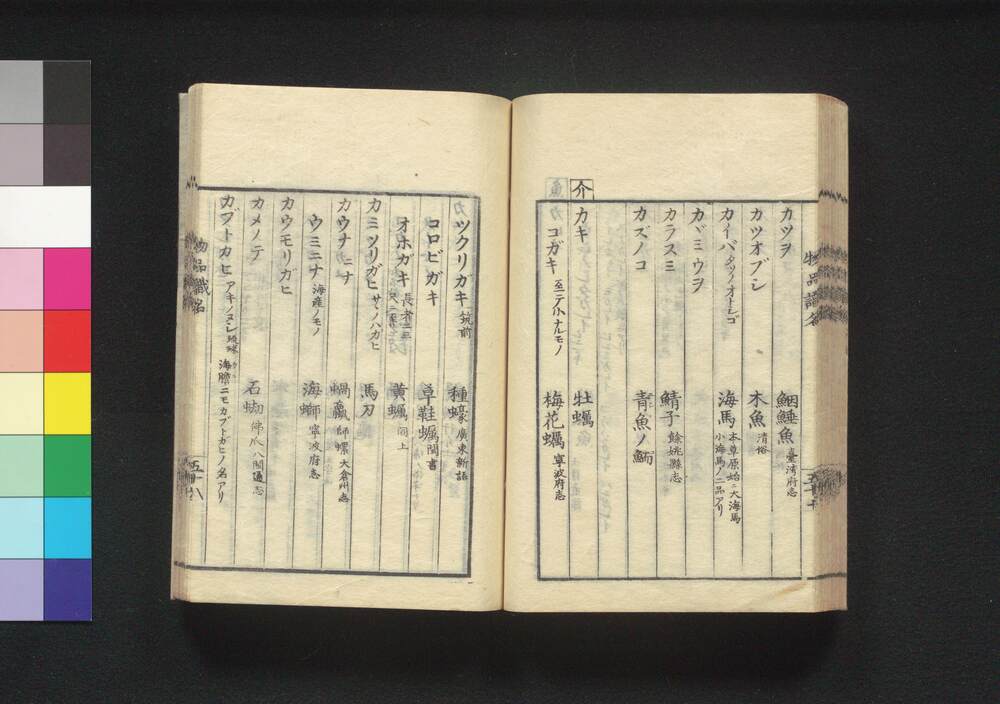 カツヲ 鮰鯉魚 臺湾府志
カツオブシ 木魚 清俗
カイバ タツノオトシゴ 海馬 本草原始ニ大海馬
小海馬ノ二品アリ
カヾミウヲ
カラスミ 鯔子 餘姚縣志
カズノコ 青魚ノ鮞
介
カキ 牡蠣
コガキ 至テ小ナルモノ 梅花蠣 寧波府志
ツクリガキ 筑前 種蠔 廣東新語
コロビガキ 草鞋蠣 閩書
オホガキ 黄蠣 同上
カミソリガヒ サノハガヒ 馬刀
カウナ ニナ 蝸蠃 師螺 大倉州志
ウミニナ 海産ノモノ 海螄 寧波府志
カウモリガヒ
カメノテ 石蜐 佛爪 八閩通志
カブトカヒ アキノヌシ 琉球 海膽ニモカブトガヒノ名アリ
物品識名
五十八